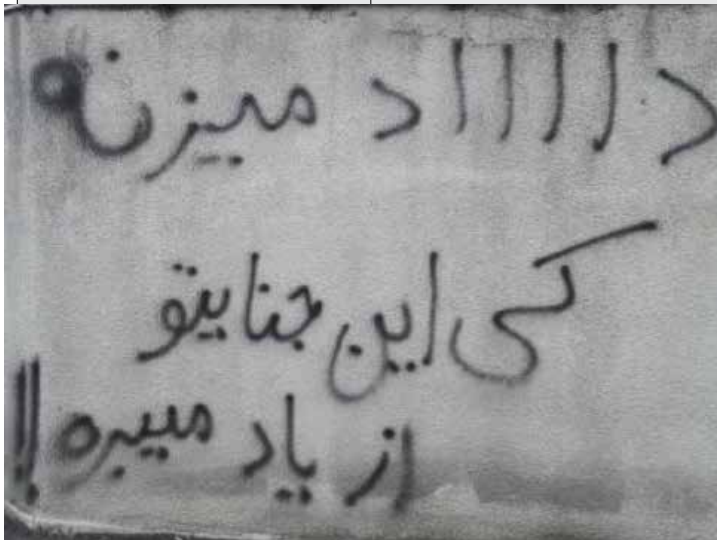 دااااد میزنه
کی این جنایتو
از یاد میبره !!